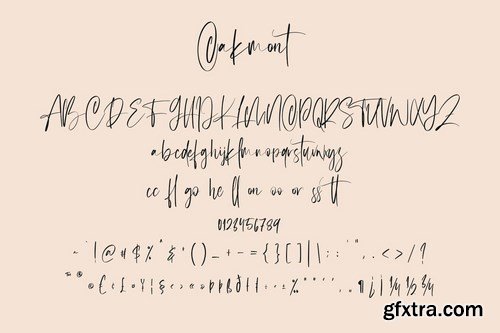 Oakmont
ABCDEFGHIJKLMNOPQRSTUVWXYZ
abcdefghijklmnopqrstuvwxyz
cc fl go he ll on oo or ss tt
0123456789
~ ` ! @ # $ % ^ & * ( ) _ + - = { } [ ] | \ : ; " ' , . < > / ?
¶ ¡ ¼ ½ ¾
gfxtra.com